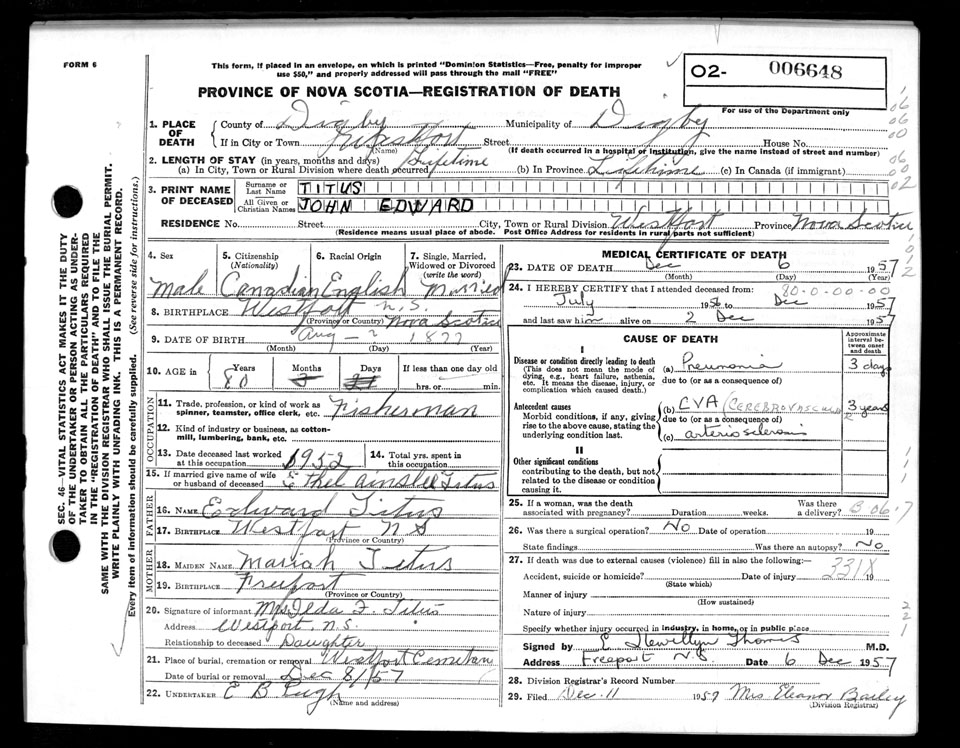 FORM 6
This form, if placed in an envelope, on which is printed "Dominion Statistics—Free, penalty for improper
use $50," and properly addressed will pass through the mail "FREE"
02- 006648
For use of the Department only
PROVINCE OF NOVA SCOTIA—REGISTRATION OF DEATH
1. PLACE OF DEATH
County of Digby Municipality of Digby
If in City or Town Westport Street House No.
(Name) (If death occurred in a hospital or institution, give the name instead of street and number)
2. LENGTH OF STAY (in years, months and days)
(a) In City, Town or Rural Division where death occurred Lifetime (b) In Province Lifetime (c) In Canada (if immigrant)
3. PRINT NAME OF DECEASED
Surname or Last Name TITUS
All Given or Christian Names JOHN EDWARD
RESIDENCE No. Street City, Town or Rural Division Westport Province Nova Scotia
(Residence means usual place of abode. Post Office Address for residents in rural parts not sufficient)
4. Sex 5. Citizenship (Nationality) 6. Racial Origin 7. Single, Married, Widowed or Divorced (write the word)
Male Canadian English Married
8. BIRTHPLACE Westport N.S.
(Province or Country) Nova Scotia
9. DATE OF BIRTH Aug - ? 1877
(Month) (Day) (Year)
10. AGE in Years Months Days If less than one day old
80 hrs. or min.
OCCUPATION
11. Trade, profession, or kind of work as
spinner, teamster, office clerk, etc. Fisherman
12. Kind of industry or business, as cotton-
mill, lumbering, bank, etc.
13. Date deceased last worked at this occupation 1952 14. Total yrs. spent in this occupation
15. If married give name of wife or husband of deceased Ethel Ainslee Titus
FATHER
16. NAME Edward Titus
17. BIRTHPLACE Westport N S
(Province or Country)
MOTHER
18. MAIDEN NAME Mariah Titus
19. BIRTHPLACE Freeport
(Province or Country)
20. Signature of informant Mrs Ilda F. Titus
Address Westport, N.S.
Relationship to deceased Daughter
21. Place of burial, cremation or removal Westport Cemetery
Date of burial or removal Dec 8/57
22. UNDERTAKER E B Pugh
(Name and address)
MEDICAL CERTIFICATE OF DEATH
23. DATE OF DEATH Dec 6 1957
(Month) (Day) (Year)
24. I HEREBY CERTIFY that I attended deceased from: 80-0-00-00
July 195 to Dec 1957
and last saw him alive on 2 Dec 1957
CAUSE OF DEATH
Approximate interval between onset and death
I
Disease or condition directly leading to death (a) Pneumonia 3 days
(This does not mean the mode of
dying, e.g., heart failure, asthenia,
etc. It means the disease, injury, or
complication which caused death.)
due to (or as a consequence of)
Antecedent causes (b) CVA (CEREBROVASCULAR 3 years
Morbid conditions, if any, giving
rise to the above cause, stating the
underlying condition last.
due to (or as a consequence of)
(c) arteriosclerosis
II
Other significant conditions
contributing to the death, but not
related to the disease or condition
causing it.
25. If a woman, was the death associated with pregnancy? Duration weeks. Was there a delivery?
26. Was there a surgical operation? No Date of operation 19
State findings Was there an autopsy? No
27. If death was due to external causes (violence) fill in also the following:—
331X
Accident, suicide or homicide? Date of injury 19
(State which)
Manner of injury
(How sustained)
Nature of injury
Specify whether injury occurred in industry, in home, or in public place
Signed by E. Llewellyn Thomas M.D.
Address Freeport N.S. Date 6 Dec 1957
28. Division Registrars Record Number
29. Filed Dec. 11 1957 Mrs Eleanor Bailey
(Division Registrar)
SEC. 46—VITAL STATISTICS ACT MAKES IT THE DUTY
OF THE UNDERTAKER OR PERSON ACTING AS UNDER-
TAKER TO OBTAIN ALL THE PARTICULARS REQUIRED
IN THE "REGISTRATION OF DEATH" AND TO FILE THE
SAME WITH THE DIVISION REGISTRAR WHO SHALL ISSUE THE BURIAL PERMIT.
WRITE PLAINLY WITH UNFADING INK. THIS IS A PERMANENT RECORD.
Every item of information should be carefully supplied. (See reverse side for instructions.)